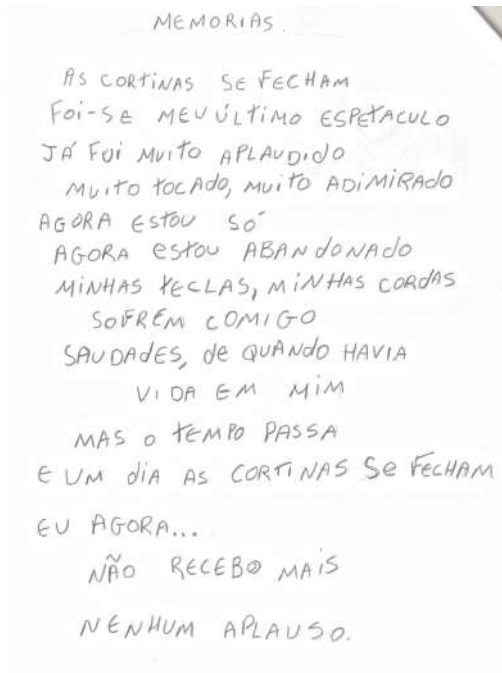 MEMORIAS.
AS CORTINAS SE FECHAM
FOI-SE MEU ÚLTIMO ESPETACULO
JÁ FUI MUITO APLAUDIDO
MUITO TOCADO, MUITO ADIMIRADO
AGORA ESTOU SÓ
AGORA ESTOU ABANDONADO
MINHAS TECLAS, MINHAS CORDAS
SOFREM COMIGO
SAUDADES, DE QUANDO HAVIA
VIDA EM MIM
MAS O TEMPO PASSA
E UM DIA AS CORTINAS SE FECHAM
EU AGORA...
NÃO RECEBO MAIS
NENHUM APLAUSO.